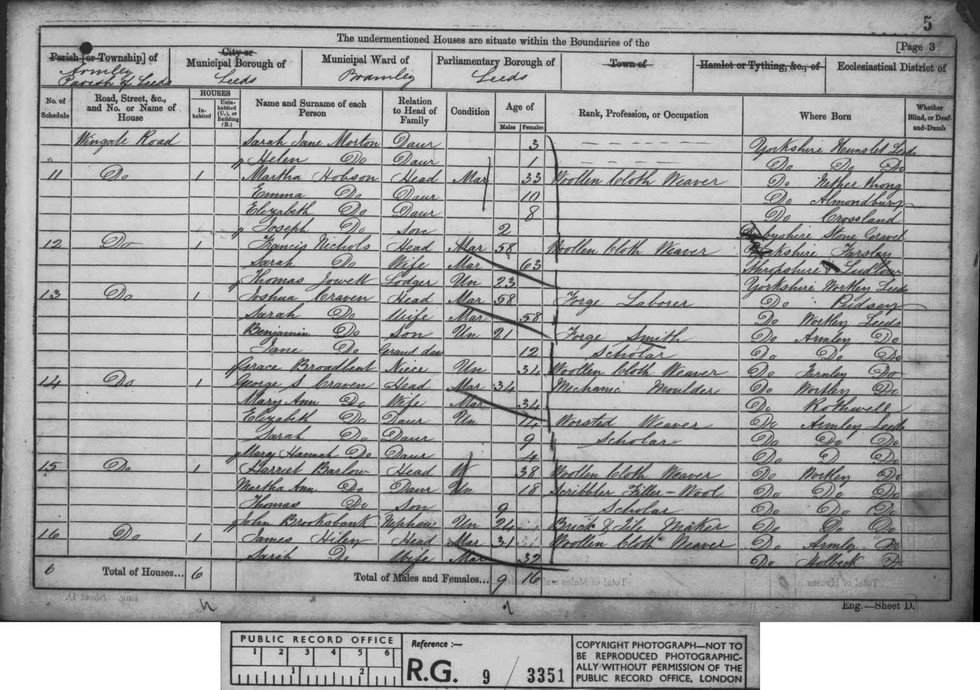 5
The undermentioned Houses are situate within the Boundaries of the
[Page 3
Parish [or Township] of
Armley
Parish of Leeds
City or Municipal Borough of
Leeds
Municipal Ward of
Bramley
Parliamentary Borough of
Leeds
Town of
Hamlet or Tything, &c., of
Ecclesiastical District of
No. of Schedule
Road, Street, &c., and No. or Name of House
HOUSES
Inhabited
Uninhabited (U.), or Building (B.)
Name and Surname of each Person
Relation to Head of Family
Condition
Age of
Males
Females
Rank, Profession, or Occupation
Where Born
Whether Blind, or Deaf-and-Dumb
Wingate Road Sarah Jane Morton Daur 3 Yorkshire Hunslet Leeds
Helen Do Daur 1 Do Do Do
11 Do 1 Martha Hobson Head Mar 33 Woollen Cloth Weaver Do Nether Thong
Emma Do Daur 10 Do Almondbury
Elizabeth Do Daur 8 Do Crossland
Joseph Do Son 2 Derbyshire Stone Gravel
12 Do 1 Francis Nichols Head Mar 58 Woollen Cloth Weaver Yorkshire Farsley
Sarah Do Wife Mar 63 Shropshire Ludlow
Thomas Jowett Lodger Un 23 Yorkshire Wortley Leeds
13 Do 1 Joshua Craven Head Mar 58 Forge Laborer Do Pudsey
Sarah Do Wife Mar 58 Do Wortley Leeds
Benjamin Do Son Un 21 Forge Smith Do Armley Do
Jane Do Grand dau 12 Scholar Do Do Do
Grace Broadbent Niece Un 34 Woollen Cloth Weaver Do Farnley Do
14 Do 1 George S Craven Head Mar 34 Mechanic Moulder Do Wortley Do
Mary Ann Do Wife Mar 34 Do Rothwell
Elizabeth Do Daur Un 14 Worsted Weaver Do Armley Leeds
Sarah Do Daur 9 Scholar Do Do Do
Mary Hannah Do Daur 4 Do D Do
15 Do 1 Harriet Barlow Head W 38 Woollen Cloth Weaver Do Wortley Do
Martha Ann Do Daur Un 18 Scribbler Filler-Wool Do Do Do
Thomas Do Son 9 Scholar Do Do Do
John Brooksbank Nephew Un 24 Brick & Tile Maker Do Do Do
16 Do 1 James Hiley Head Mar 31 Woollen Cloth Weaver Do Armley Do
Sarah Do Wife Mar 32 Do Holbeck D
6 Total of Houses... 6 Total of Males and Females... 9 16
Eng.—Sheet D.
PUBLIC RECORD OFFICE
1 2 3 4 5 6
1 2
Reference :—
R.G. 9 / 3351
COPYRIGHT PHOTOGRAPH—NOT TO
BE REPRODUCED PHOTOGRAPHIC-
ALLY WITHOUT PERMISSION OF THE
PUBLIC RECORD OFFICE, LONDON